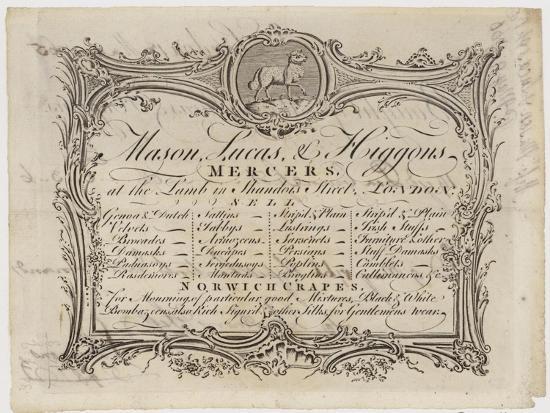 Mason, Lucas, & Higgons
MERCERS,
at the Lamb in Shandois Street, LONDON,
SELL
Genoa & Dutch Sattins Strip'd & Plain Strip'd & Plain
Velvets Tabbys Lustrings Irish Stuffs
Brocades Armozeens Sarsnets Furniture & other
Damasks Ducapes Persians Stuff Damasks
Paduasoys Poplins Camblets
Rasdemores Mantuas Calimancos &c.
NORWICH CRAPES,
For Mourning, of particular good Mixtures, Black & White
Bombazeens, also Rich Figur'd & other Silks for Gentlemens wear.